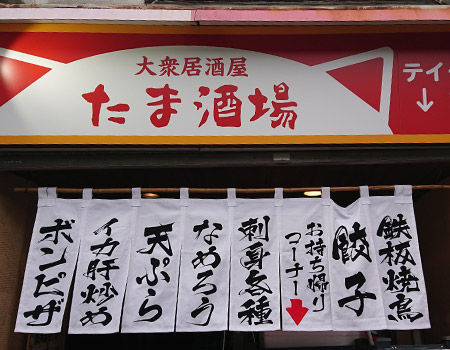 大衆居酒屋
たま酒場
テイ
↓
鉄板焼鳥
餃子
お持ち帰り
コーナー↓
刺身各種
なめろう
天ぷら
イカ肝炒め
ボンピザ